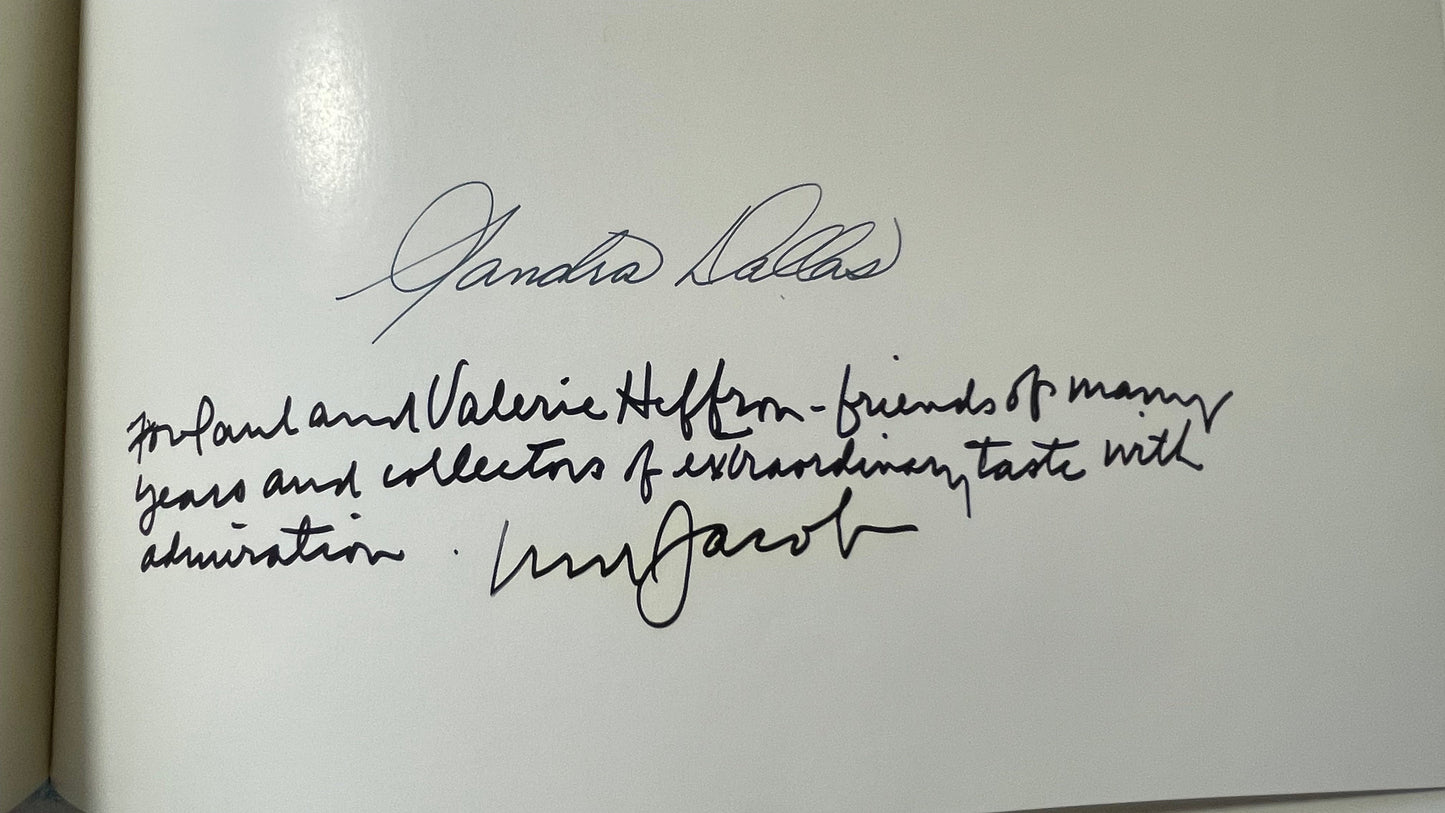 Sandra Dallas
For Paul and Valerie Heffron - friends of many
years and collectors of extraordinary taste with
admiration. Jacob